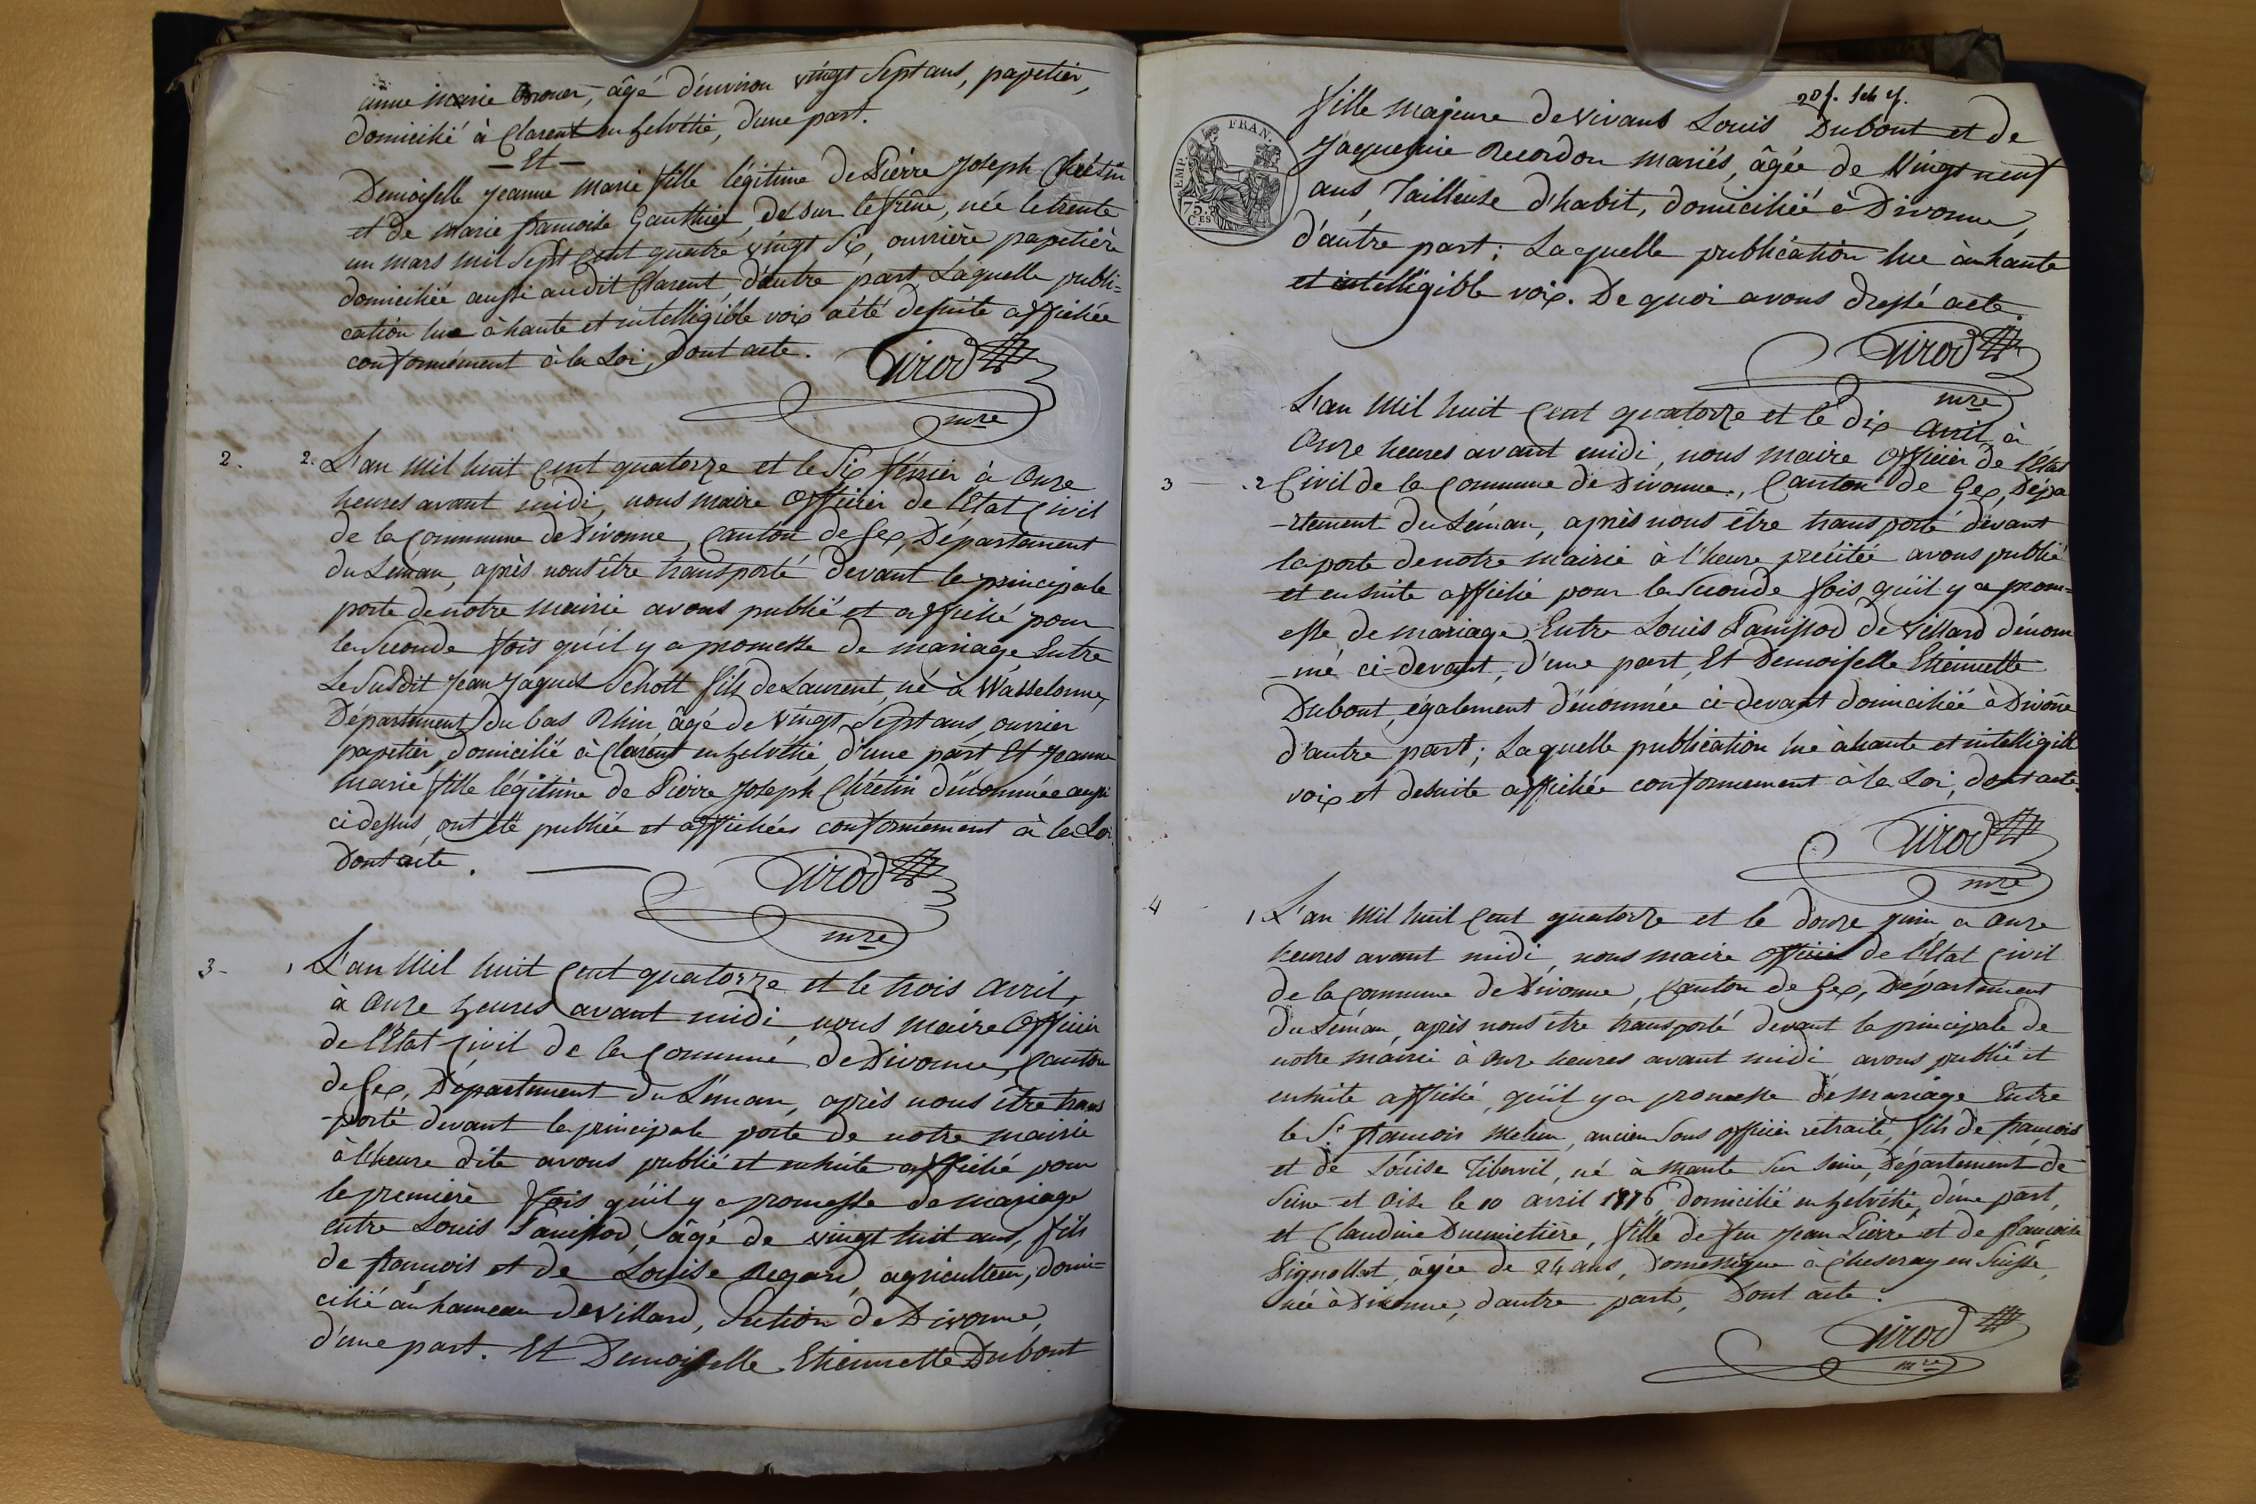 anne marie Broner, âgé d'environ vingt Sept ans, papetier,
domicilié à Clarent en helvétie, d'une part.
— Et —
Demoiselle jeanne marie fille légitime de Pierre joseph Chrétin
et de marie francoise Gauthier, de sur le frêne, née le trente
un mars mil Sept Cent quatre vingt Six, ouvrière papetière
domiciliée aussi audit Clarent, d'autre part Laquelle publi=
cation lue à haute et intelligible voix a été desuite affichée
conformément à la Loi, Dont acte.
Girod
mre
2.
2. L'an mil huit Cent quatorze et le Six février à Onze
heures avant midi, nous maire Officier de l'Etat Civil
de la Commune de Divonne, Canton de Gex, Département
du Léman, après nous être transporté devant la principale
porte de notre mairie avons publié et affiché pour
la Seconde fois qu'il y a promesse de mariage Entre
Le Susdit jean jaques Schott fils de Laurent, né à Wasselonne,
Département du bas Rhin âgé de vingt Sept ans, ouvrier
papetier, domicilié à Clarent en helvétie d'une part Et jeanne
marie fille légitime de Pierre joseph Chrétin dénommée aussi
ci dessus, ont été publiée et affichées conformément à la Loi
Dont acte.
Girod
mre
3-
1 L'an Mil huit Cent quatorze et le trois avril,
à Onze heures avant midi, nous maire Officier
de l'Etat Civil de la Commune de Divonne, Canton
de Gex, Département du Léman, après nous être trans
-porté devant la principale porte de notre mairie
à l'heure dite avons publié et ensuite affiché pour
la première fois qu'il y a promesse de mariage
entre Louis Panissod, âgé de vingt huit ans, fils
de francois et de Louise Regard, agriculteur, domi=
cilié au hameau de Villard, Section de Divonne,
d'une part. Et Demoiselle Etiennette Dubout
fille majeure de vivans Louis Dubout et de
Jaquemie Recordon mariés, âgée de Vingt neuf
ans Tailleuse d'habit, domiciliée à Divonne,
d'autre part; Laquelle publication lue à haute
et intelligible voix. De quoi avons dressé acte.
FRAN.
TEMP.
75.
CES
Girod
mre
L'an Mil huit Cent quatorze et le dix avril à
Onze heures avant midi, nous maire Officier de l'Etat
3
2 Civil de la Commune de Divonne, Canton de Gex, Dépa
-rtement du Léman, après nous être transporté devant
la porte de notre mairie à l'heure précitée avons publié
et ensuite affiché pour la Seconde fois qu'il y a prom=
esse de mariage Entre Louis Panissod de Villard dénom
-mé ci-devant, d'une part, Et Demoiselle Etiennette
Dubout, également dénommée ci-devant domiciliée à Divone
d'autre part; Laquelle publication lue à haute et intelligible
voix et desuite affichée conformement à la Loi, dont acte.
Girod
mre
4
1 L'an Mil huit Cent quatorze et le douze juin à Onze
heures avant midi, nous maire officier de l'Etat Civil
de la Commune de Divonne, Canton de Gex, Département
du Léman, après nous être transporté devant la principale de
notre mairie à onze heures avant midi avons publié et
ensuite affiché, qu'il y a promesse de mariage Entre
le Sr. francois Melun, ancien Sous officier retraité, fils de françois
et de Louise Tibervil, né à mante Sur Seine, Département de
Seine et Oise le 10 avril 1776, domicilié en helvétie, d'une part,
et Claudine Ducimetière, fille de feu jean Pierre et de francoise
Pignollet, âgée de 24 ans, Domestique à Cheseray en Suisse,
née à Divonne, d'autre part, Dont acte.
Girod
mre